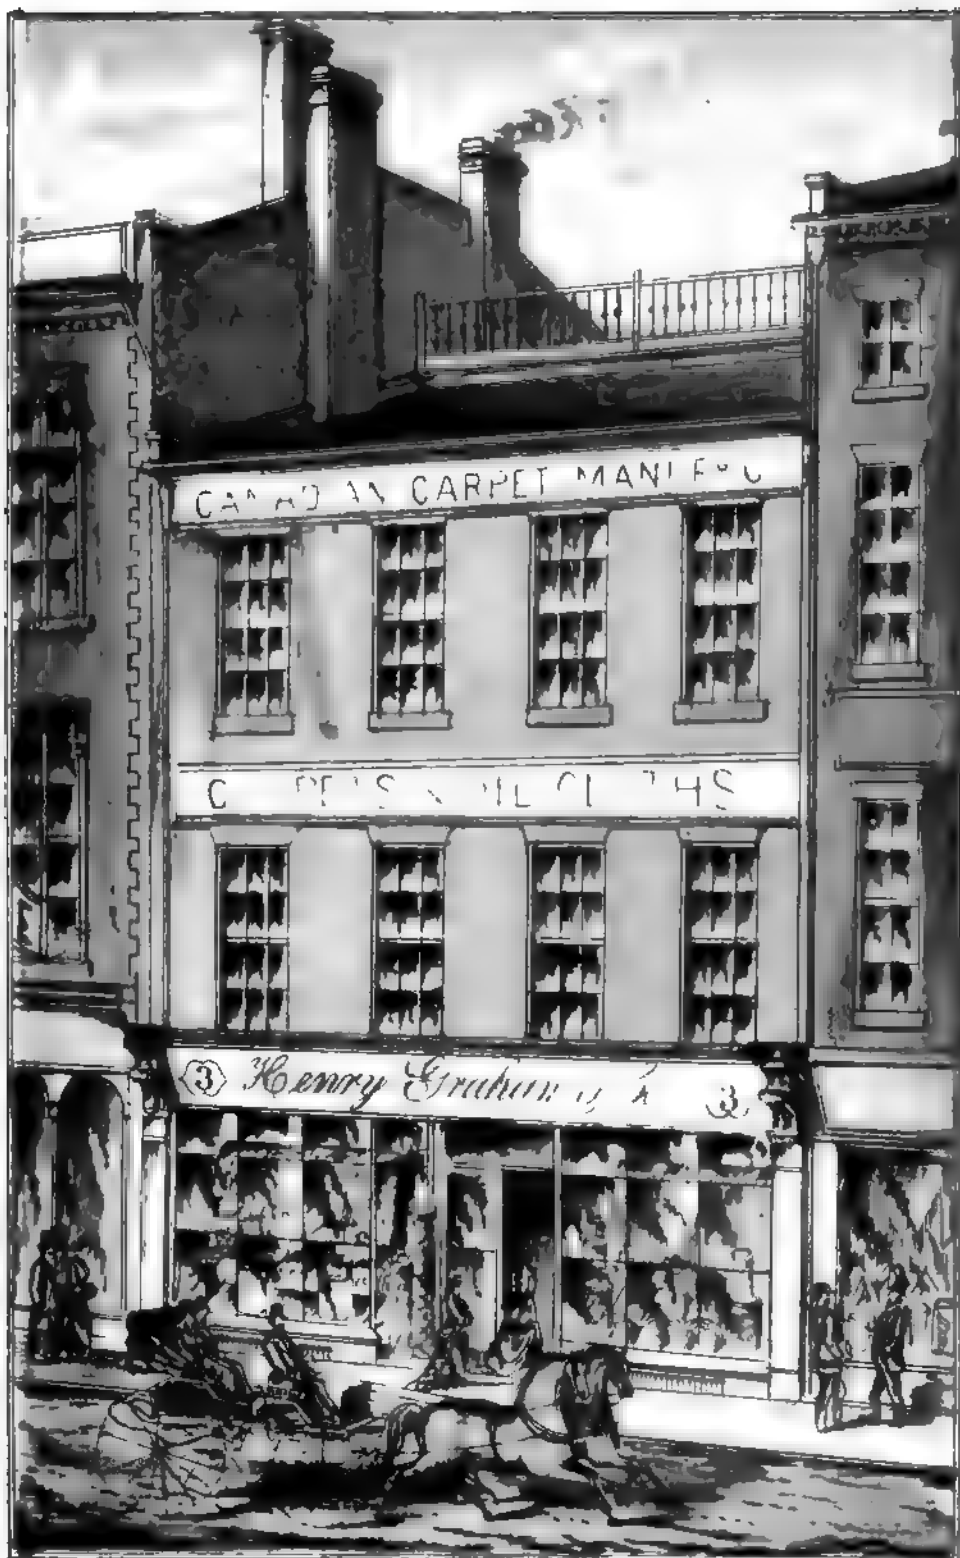 CANADIAN CARPET
CARPETS & OIL CLOTHS
3 Henry Graham & 3